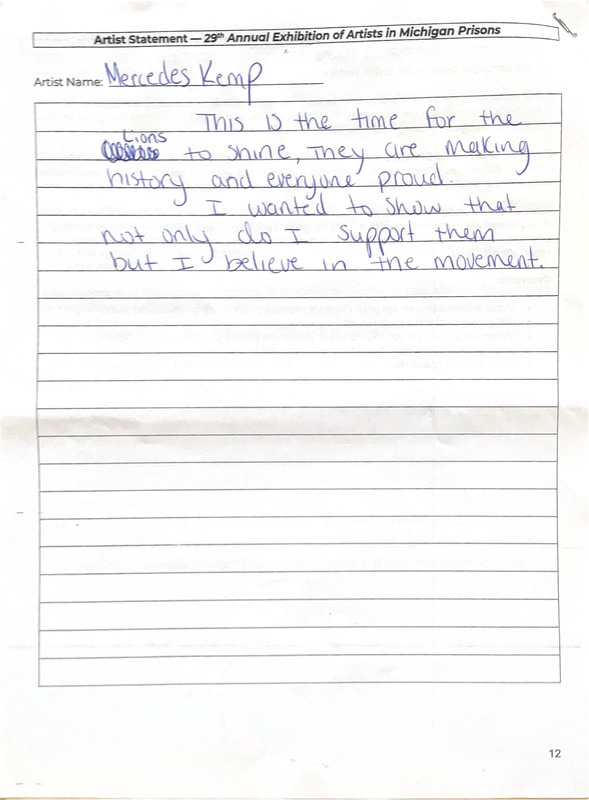 Artist Statement — 29th Annual Exhibition of Artists in Michigan Prisons
Artist Name: Mercedes Kemp
This is the time for the
Lions
to shine, They are making
history and everyone proud.
I wanted to show that
not only do I support them
but I believe in the movement.
12